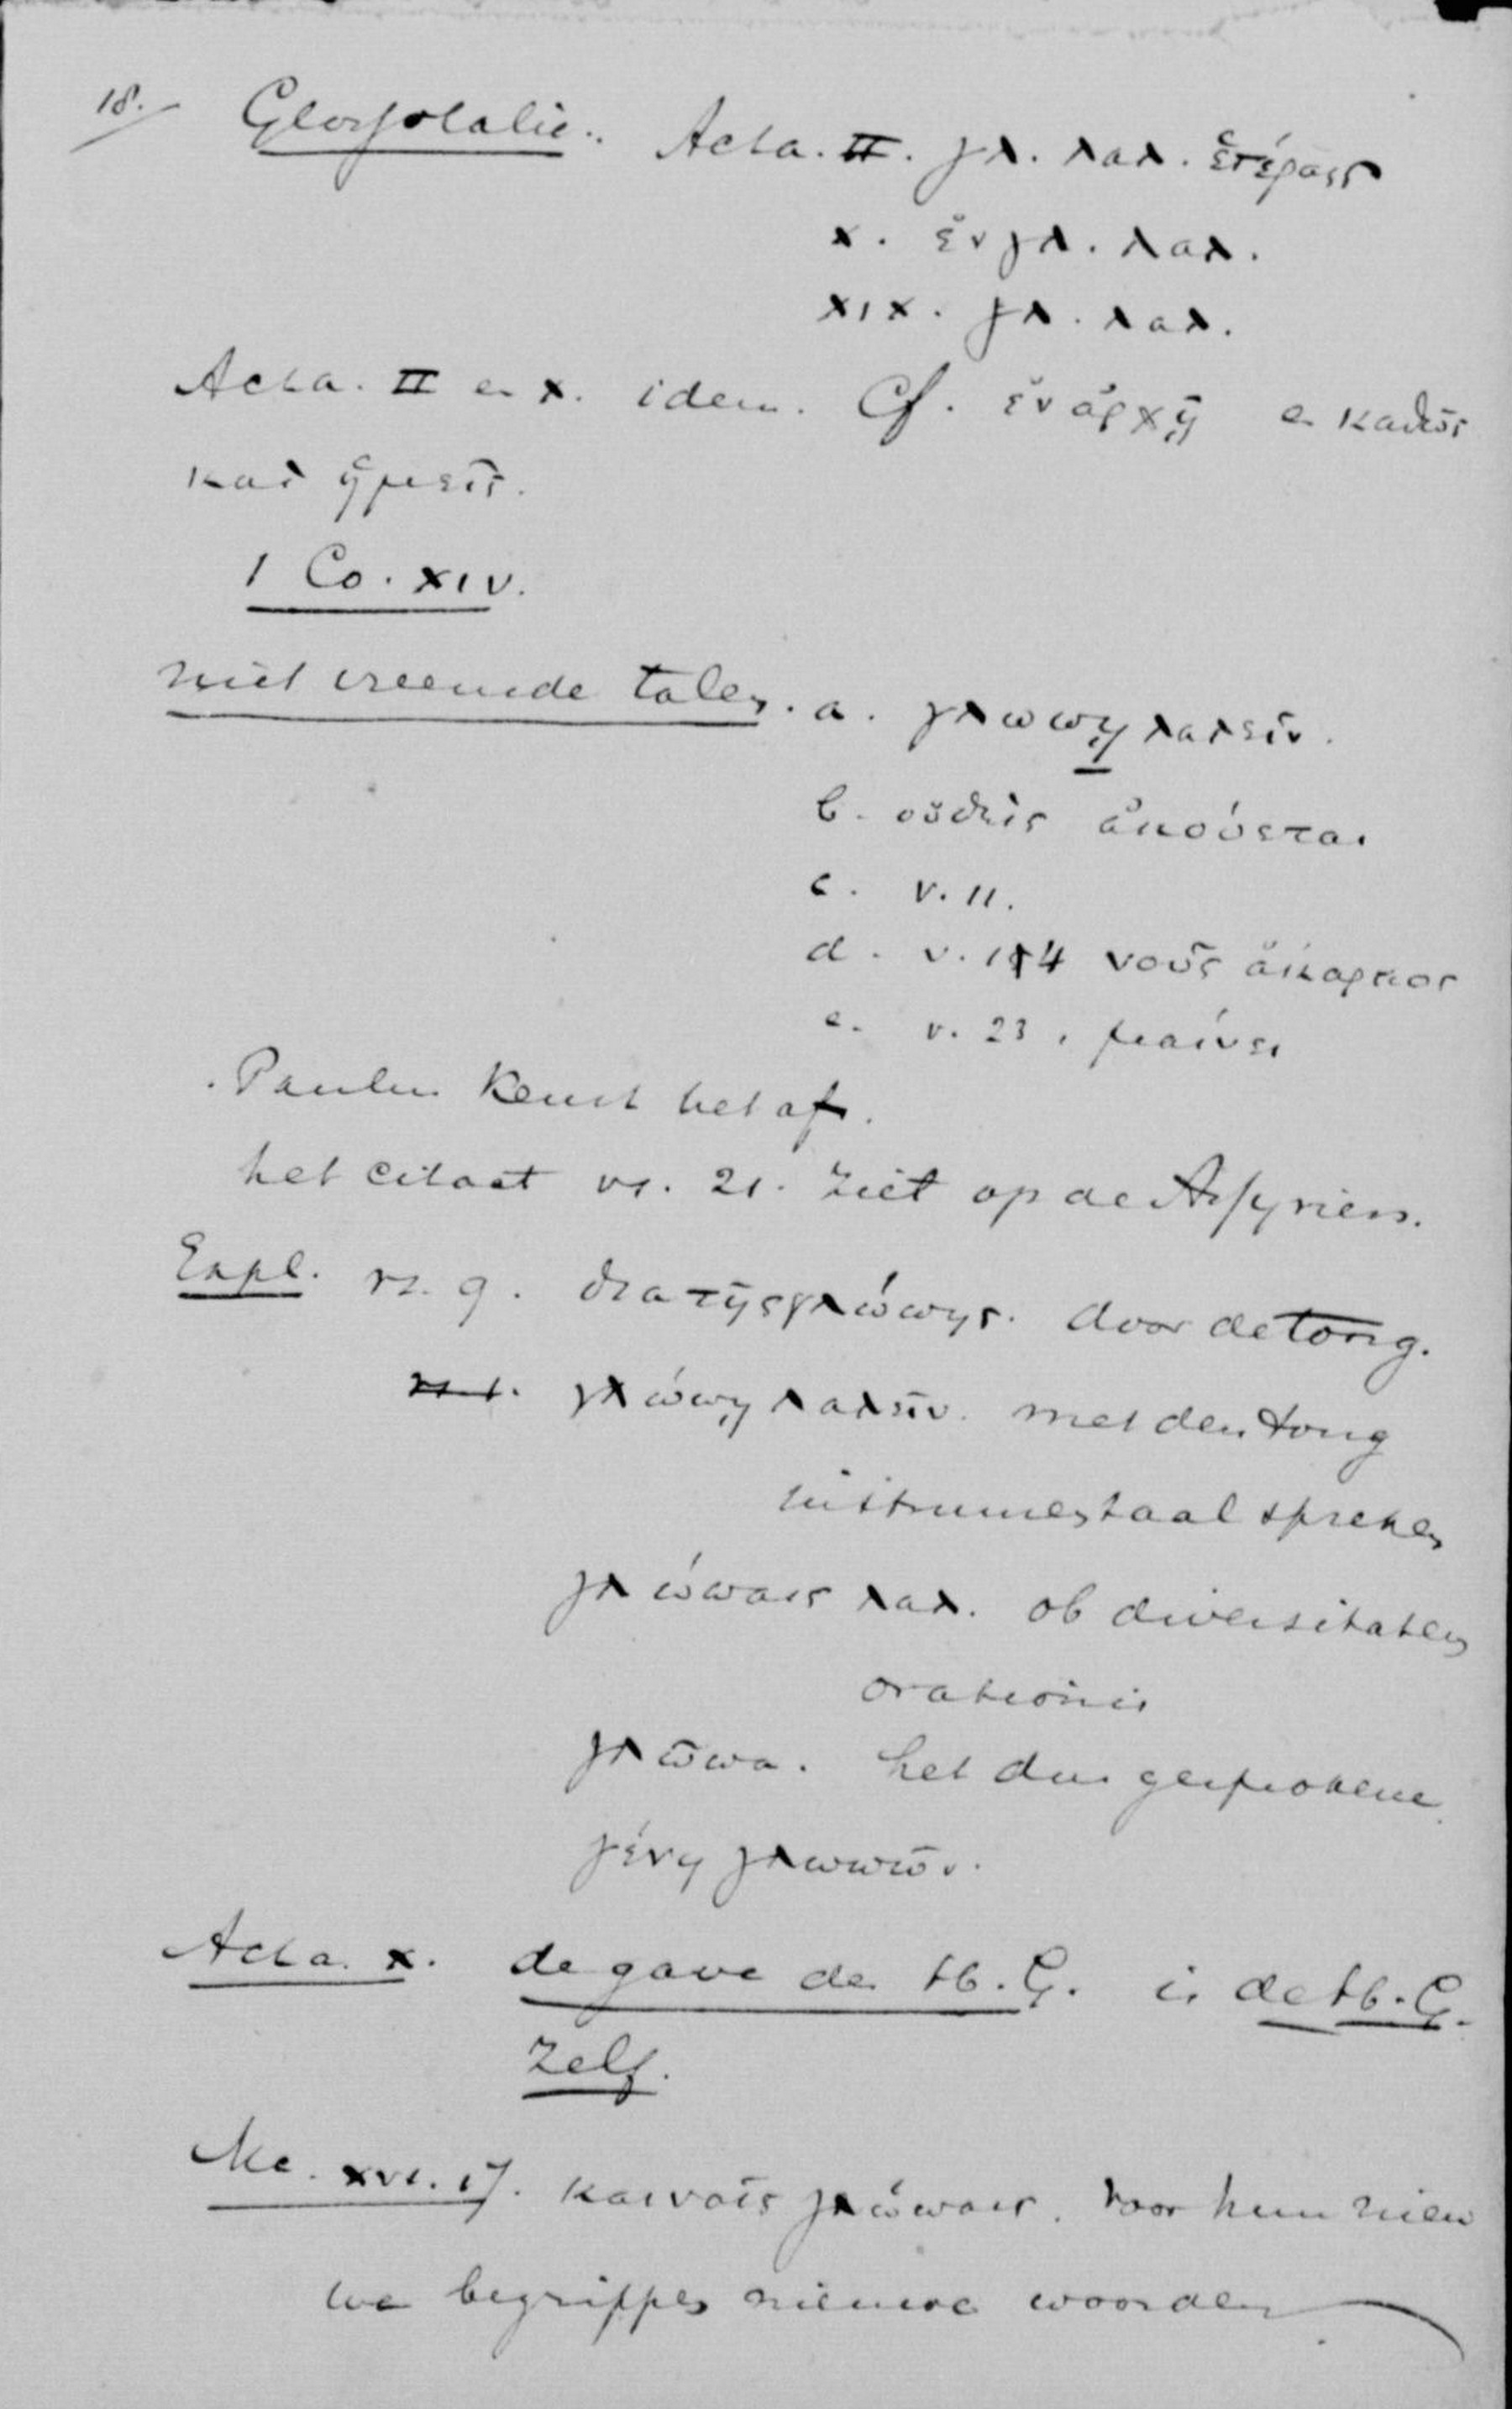 18. Glossolalie. Acta. II. γλ. λαλ. ἑτέραις
x. ἐν γλ. λαλ.
xix. γλ. λαλ.
Acta. II en x. idem. Cf. ἐν ἀρχῇ en καθὼς
καὶ ἡμεῖς.
1 Co. xiv.
niet vreemde talen. a. γλωσσῃ λαλεῖν.
b. οὐδεὶς ἀκούεται
c. v. 11.
d. v. 14 νοῦς ἄκαρπος
e. v. 23, μαίνει
Paulus keurt het af.
het citaat vs. 21. ziet op de Assyriers.
Expl. vs. 9. δια τῆς γλώσσης. door de tong.
γλώσσῃ λαλεῖν. met den tong
instrumentaal spreken
γλώσσαις λαλ. ob diversitatem
orationis
γλῶσσα. het dus gesprokene
γένη γλωσσῶν.
Acta. x. de gave des H. G. is de H. G.
zelf.
Mc. xvi. 17. καιναῖς γλώσσαις. voor hun nieu
we begrippen nieuwe woorden